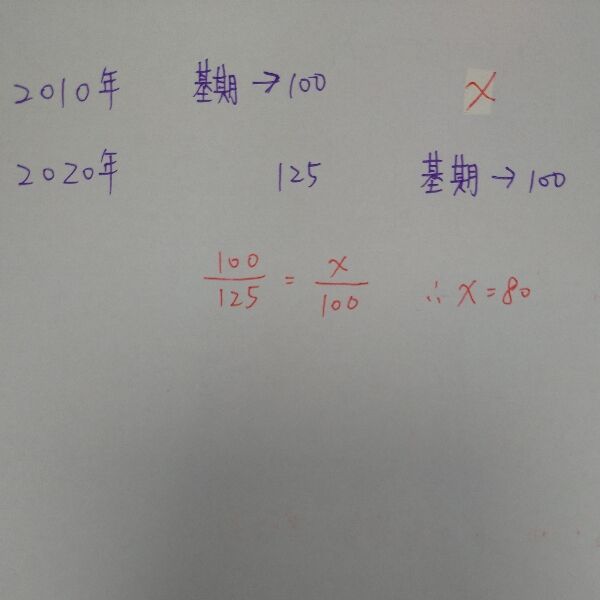 2010年 基期→100 x
2020年 125 基期→100
100/125 = x/100 ∴ x=80